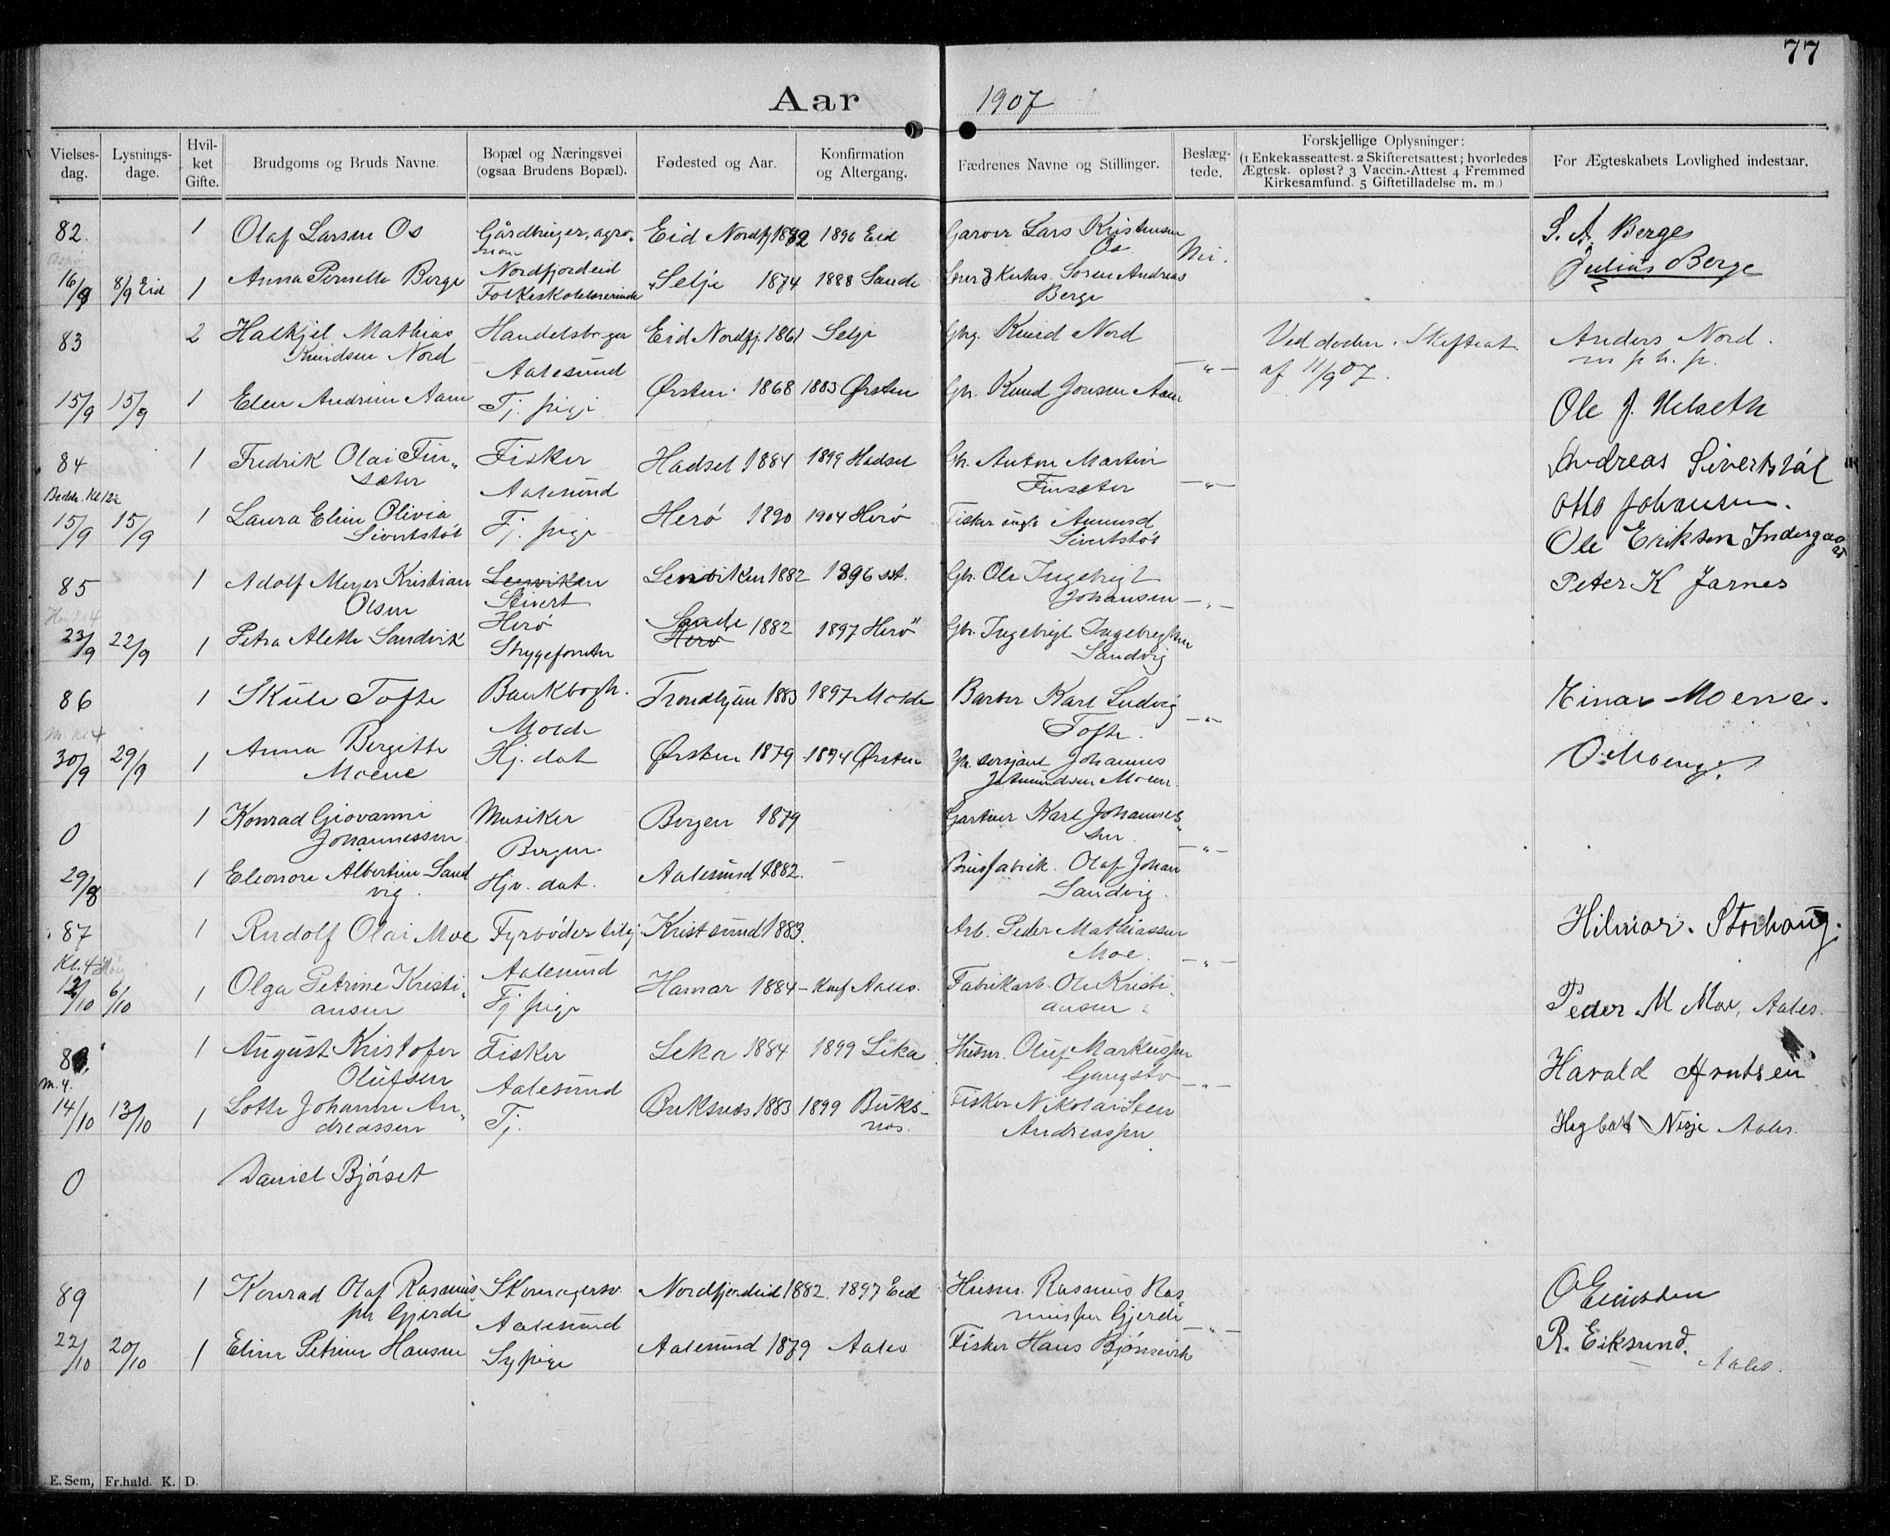 77
Aar 1907
Vielses-dag. Lysnings-dage. Hvil-ket Gifte. Brudgoms og Bruds Navne. Bopæl og Næringsvei (ogsaa Brudens Bopæl). Fødested og Aar. Konfirmation og Altergang. Fædrenes Navne og Stillinger. Beslæg-tede. Forskjellige Oplysninger: (1 Enkekasseattest. 2 Skifteretsattest; hvorledes Ægtesk. opløst? 3 Vaccin.-Attest 4 Fremmed Kirkesamfund. 5 Giftetilladelse m. m.) For Ægteskabets Lovlighed indestaar.
82. 1 Olaf Larsen Os Gårdbruger, agro- Eid Nordfj 1882 1896 Eid Lars Kristensen S. A. Berge
nom Os Nei.
16/9 8/9 Eid 1 Anna Pernella Berge Nordfjordeid Selje 1874 1888 Sande Søren Andreas Julius Berge
Folkeskolelærerinde Berge
83 2 Halkjel Mathias Handelsbruger Eid Nordfj. 1861 Selje Knud Nord Ved døden. Skifteat Anders Nord.
Knudsen Nord Aalesund — „ — af 11/9 07. m p h. p.
15/9 15/9 1 Elen Andrine Aam Tj. pige Ørsten 1868 1883 Ørsten Gbr. Knud Jonsen Aam Ole J. Helseth
84 1 Fredrik Olai Fin- Fisker Hadsel 1884 1899 Hadsel Gbr. Anton Martin Andreas Sivertstøl
sæter Aalesund Finsæter — „ —
15/9 15/9 1 Laura Elin Olivia Tj. pige Herø 1890 1904 Herø Fisker Amund Otto Johansen.
Sivertstøl Sivertstøl Ole Eriksen Indergaard
85 1 Adolf Meyer Kristian Lenviken Lenviken 1882 1896 sst. Gbr. Ole Ingebrigt Peter K Jarnes
Olsen Herø Johansen — „ —
23/9 22/9 1 Petra Alette Sandvik Sande Herø 1882 1897 Herø Gbr. Ingebrigt Ingebrigtsen
Sandvig
86 1 Skule Tofte Bankbogh. Trondhjem 1883 1897 Molde Barber Karl Ludvig Einar Moene.
Molde Tofte. — „ —
30/9 29/9 1 Anna Bergitte Hj. dat Ørsten 1879 1894 Ørsten Gbr. sersjant Johannes
Moene Moene
0 1 Konrad Giovanni Musiker Bergen 1879 Gartner Karl Johannes-
Johannessen Bergen sen — „ —
29/8 1 Eleonore Albertine Sand Hjv. dat. Aalesund 1882. — Brusfabrik. Olaf Johan
vig Sandvig.
87 1 Rudolf Olai Moe Fyrbøder Kristsund 1883. Arb. Peder Mathiassen Hilmar. Storhaug.
Kl. 4 Aalesund Moe. — „ —
12/10 6/10 1 Olga Petrine Kristi- Tj pige Hamar 1884 – Konf Aales. Fabrikarb. Ole Kristi- Peder M Moe, Aales.
ansen ansen
88. 1 August Kristofer Fisker Leka 1884 1899 Leka Husm. Oluf Markussen Harald Arntsen
Olufsen Aalesund Gangstø — „ —
m. 4.
14/10 13/10 1 Lotte Johanne An- Tj. Buksnes 1883 1899 Buks- Fisker Nikolai Steen Hagbart Nisje Aales.
dreassen nes. Andreassen
0 Daniel Bjørset
89 1 Konrad Olaf Rasmus- Skomagersv Nordfjordeid 1882. 1897 Eid Husm. Rasmus Ras
sen Gjerde Aalesund mussen Gjerde — „ —
22/10 20/10 1 Eline Petrine Hansen Sypige Aalesund 1879 Aales Fisker Hans Bjørnevik R. Eiksund.
Aales.
E. Sem, Fr.hald. K. D.